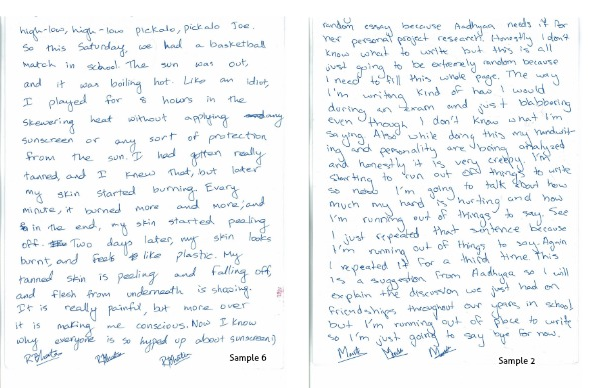 high-low, high-low pickalo, pickalo Joe.
So this Saturday, we had a basketball
match in school. The sun was out,
and it was boiling hot. Like an idiot,
I played for 8 hours in the
skewering heat without applying any
sunscreen or any sort of protection
from the sun. I had gotten really
tanned, and I knew that, but later
my skin started burning. Every
minute, it burned more and more, and
in the end, my skin started pealing
off. Two days later, my skin looks
burnt, and feels like plastic. My
tanned skin is peeling and falling off,
and flesh from underneath is showing.
It is really painful, but more over
it is making me conscious. Now I know
why everyone is so hyped up about sunscreen:)
Sample 6
random essay because Aadhyaa needs it for
her personal project research. Honestly I don't
know what to write but this is all
just going to be extremely random because
I need to fill this whole page. The way
I'm writing kind of how I would
during an exam and just blabbering
even though I don't know what I'm
saying. Also while doing this my handwrit
ing and personality are being analyzed
and honestly it is very creepy. I'm
starting to run out of things to write
so now I'm going to talk about how
much my hand is hurting and how
I'm running out of things to say. See
I just repeated that sentence because
I'm running out of things to say. Again
I repeated it for a third time this
is a suggestion from Aadhyaa so I will
explain the discussion we just had on
friendships throughout our years in school
but I'm running out of place to write
so I'm just going to say bye for now.
Sample 2